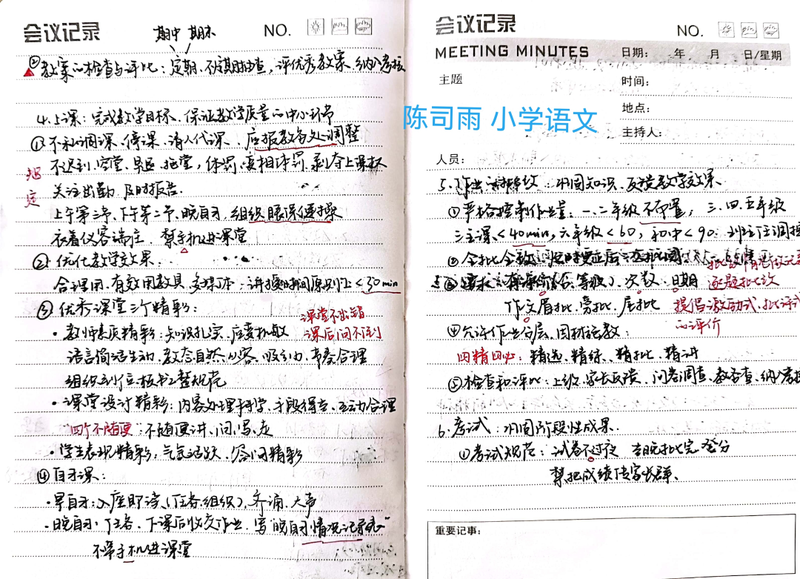 会议记录 NO.
期中 期末
②教案的检查与评比：定期、不定期抽查，评优秀教案、纳入考核
4.上课：完成教学目标、保证教学质量的中心环节
①不私调课、停课、请人代课、应报教务处调整
规定
不迟到、空堂、早退、拖堂，体罚、变相体罚、剥夺上课权
关注出勤、及时报告
上午第二节、下午第二节、晚自习，组织眼保健操
衣着仪容端庄、禁手机进课堂
②优化教学效果
合理用、有效用教具、多媒体：讲授时间原则上<30min
③优秀课堂三个精彩：
课堂不出错
课后问不倒
·教师素质精彩：知识扎实、应变机敏
语言简洁生动、教态自然从容、吸引力、节奏合理
组织到位、板书整规范
·课堂设计精彩：内容处理科学、手段得当、互动合理
"四个不随便"：不随便讲、问、写、走
·学生表现精彩，气氛活跃、答问精彩
④自习课：
·早自习：入座即读（任务、组织）、齐诵、大声
·晚自习：任务、下课后收交作业、写"晚自习情况记录表"
不带手机进课堂
会议记录 NO.
MEETING MINUTES 日期： 年 月 日/星期
主题 时间：
地点：
陈司雨 小学语文
主持人：
人员：
5.作业：巩固知识、反馈教学效果
①严格控制作业量：一、二年级不布置，三、四、五年级
三主课<40min，六年级<60，初中<90
次数、日期
逐题批改
作文眉批、旁批、尾批
提倡激励式、批评式
的评价
④允许作业分层、因材施教
四精四必：精选、精练、精批、精讲
⑤检查和评比：上级、家长反馈、问卷调查、教务查、纳入考核
6.考试：巩固阶段性成果
①考试规范：试卷不过夜 当晚批完、登分
禁把成绩传家长群、
重要记事：